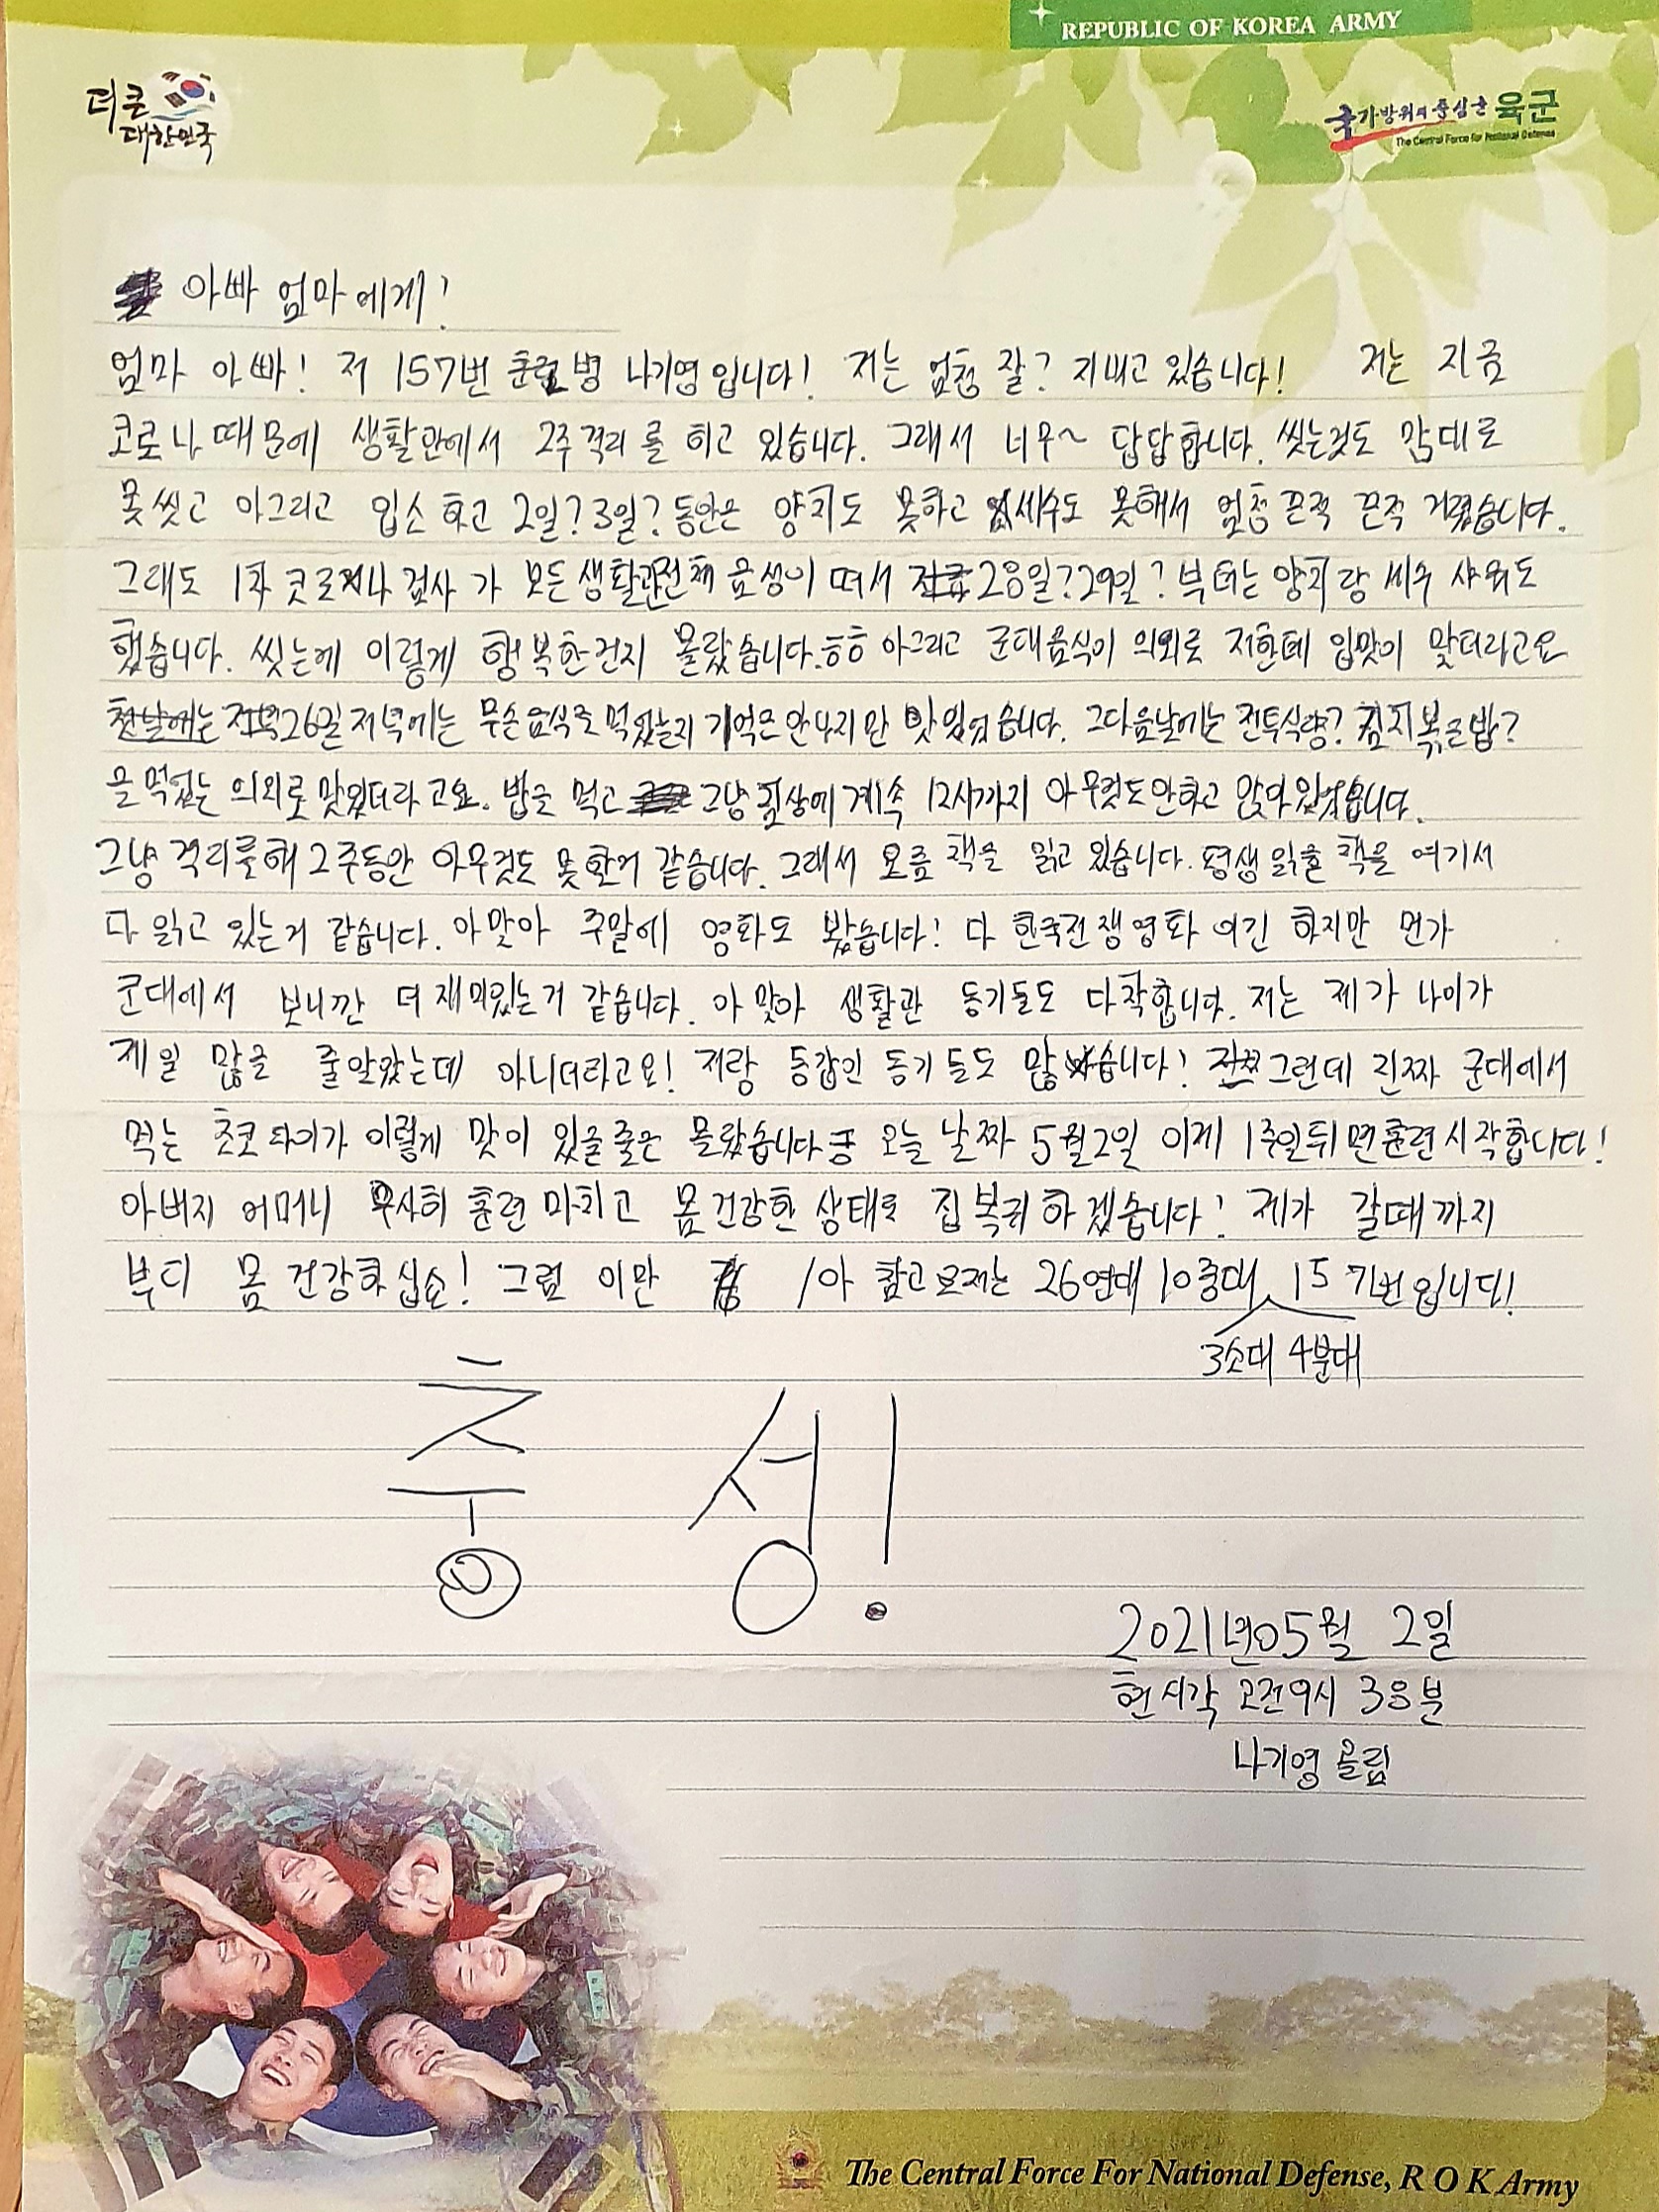 REPUBLIC OF KOREA ARMY
더 큰 대한민국
국가방위의 중심군 육군
The Central Force for National Defense
아빠 엄마에게!
엄마 아빠! 저 157번 훈련병 나기영입니다! 저는 엄청 잘? 지내고 있습니다! 저는 지금
코로나 때문에 생활관에서 2주격리를 하고 있습니다. 그래서 너무~ 답답합니다. 씻는것도 맘대로
못씻고 아그리고 입소하고 2일? 3일? 동안은 양치도 못하고 세수도 못해서 엄청 끈적 끈적 거렸습니다.
그래도 1차 코로나 검사가 모든 생활관전체 음성이 떠서 28일? 29일? 부터는 양치랑 세수 샤워도
했습니다. 씻는게 이렇게 행복한건지 몰랐습니다.ㅎㅎ 아그리고 군대음식이 의외로 저한테 입맛이 맞더라고요
첫날에는 26일 저녁에는 무슨음식을 먹었는지 기억은 안나지만 맛있었습니다. 그다음날에는 전투식량? 김치볶음밥?
을 먹었는 의외로 맛있더라고요. 밥을 먹고 그냥 침상에 계속 12시까지 아무것도안하고 앉아있었습니다.
그냥 격리를해 2주동안 아무것도 못한거 같습니다. 그래서 요즘 책을 읽고 있습니다. 평생읽을 책을 여기서
다 읽고 있는거 같습니다. 아맞아 주말에 영화도 봤습니다! 다 한국전쟁영화 이긴 하지만 먼가
군대에서 보니깐 더 재미있는거 같습니다. 아 맞아 생활관 동기들도 다착합니다. 저는 제가 나이가
제일 많을 줄알았는데 아니더라고요! 저랑 동갑인 동기들도 많습니다! 그런데 진짜 군대에서
먹는 초코파이가 이렇게 맛이 있을줄은 몰랐습니다 오늘 날짜 5월2일 이제 1주일뒤면 훈련시작합니다!
아버지 어머니 무사히 훈련마치고 몸 건강한 상태로 집 복귀 하겠습니다! 제가 갈때까지
부디 몸 건강하십쇼! 그럼 이만 /아 참고로저는 26연대 10중대 157번입니다!
3소대 4분대
충 성!
2021년05월 2일
현시각 오전9시 38분
나기영 올림
The Central Force For National Defense, R O K Army